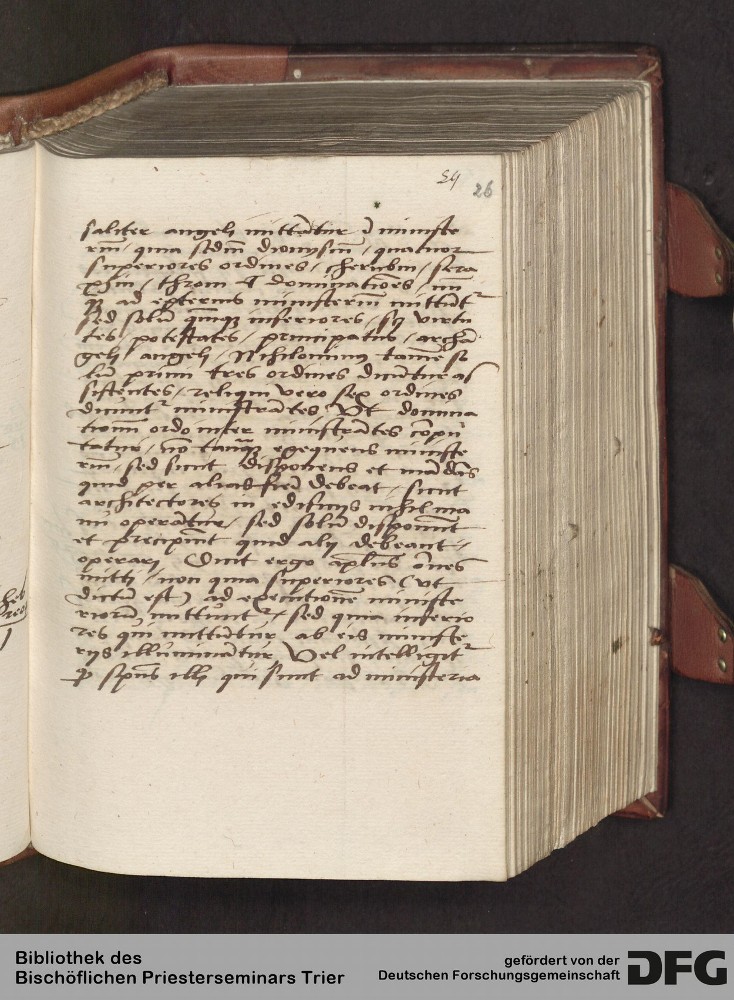 24
26
saliter angeli mittãtur ĩ ministe
riũ, quia scdm̃ dionysiũ, quatuor
superiores ordines, cherubin, sera
phin, throni & dominatiões, nũ
q̃ ad exterius ministeriũ mittũt²
sed solũ quinq̃ inferiores, scz virtu
tes, potestates, principatus, archã
geli, angeli, Nihilominus tamẽ so
lũ primi tres ordines dicũtur as
sistentes, reliqui vero sex ordines
dicunt² ministrãtes, Vt domina
tionũ ordo inter ministrãtes cõpu
tatur, nõ tanq̃ exequens ministe
riũ, sed sicut disponens et mãdãs
quid per alias fieri debeat, sicut
architectores in edificijs nihil ma
nu operãtur, sed solũ disponũnt
et precipiũt quid alij debeant
operari Dicit ergo aplũs õnes
mitti, non quia superiores (vt
dictũ est) ad executionẽ ministe
riorũ mittunt², sed quia inferio
res qui mittũtur, ab eis ministe
rijs illuminãtur Vel intelligit²
ꝑ spũs illi qui sunt ad ministeria
Bibliothek des
Bischöflichen Priesterseminars Trier
gefördert von der
Deutschen Forschungsgemeinschaft
DFG